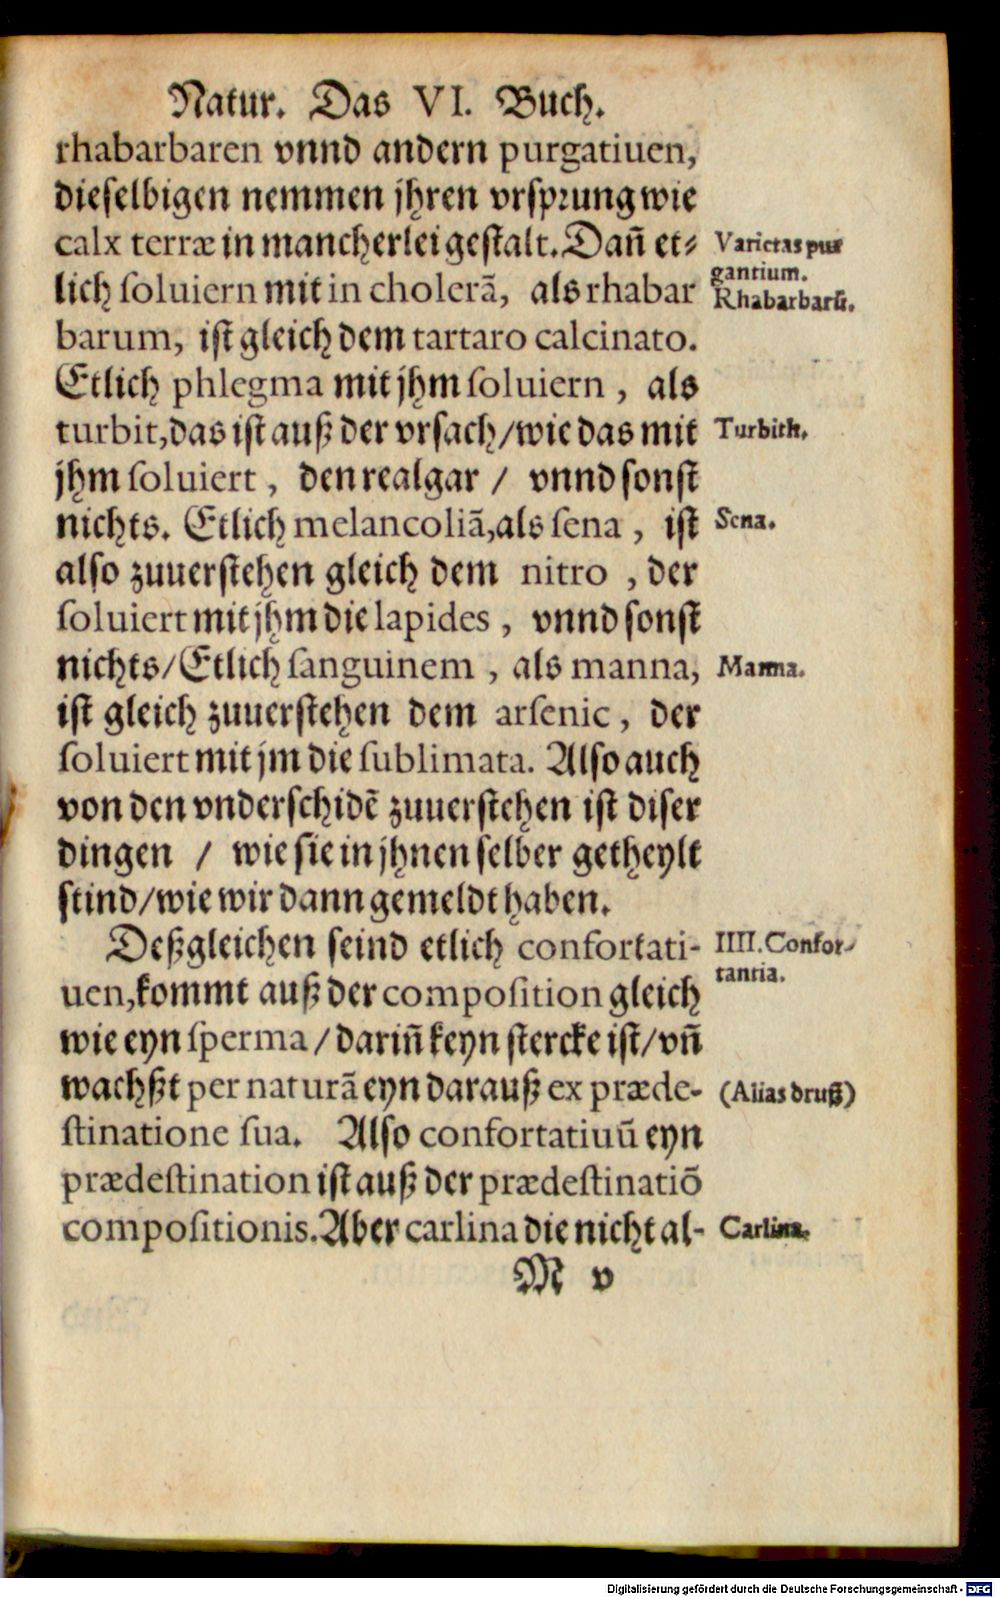 Natur. Das VI. Buch.
rhabarbaren vnnd andern purgatiuen,
dieselbigen nemmen jhren vrsprung wie
calx terræ in mancherlei gestalt. Dañ et⸗
lich soluiern mit in cholerã, als rhabar
barum, ist gleich dem tartaro calcinato.
Etlich phlegma mit jhm soluiern, als
turbit, das ist auß der vrsach/wie das mit
jhm soluiert, den realgar / vnnd sonst
nichts. Etlich melancoliã, als sena, ist
also zuuerstehen gleich dem nitro, der
soluiert mit jhm die lapides, vnnd sonst
nichts/Etlich sanguinem, als manna,
ist gleich zuuerstehen dem arsenic, der
soluiert mit jm die sublimata. Also auch
von den vnderschidẽ zuuerstehen ist diser
dingen / wie sie in jhnen selber getheylt
seind/wie wir dann gemeldt haben.
Deßgleichen seind etlich confortati-
uen, kommt auß der composition gleich
wie eyn sperma/dariñ keyn stercke ist/vñ
wachßt per naturã eyn darauß ex præde-
stinatione sua. Also confortatiuũ eyn
prædestination ist auß der prædestinatiõ
compositionis. Aber carlina die nicht al-
M v
Varietas pur
gantium.
Rhabarbarũ.
Turbith.
Sena.
Manna.
IIII. Confor-
tantia.
(Alias druß)
Carlina.
Digitalisierung gefördert durch die Deutsche Forschungsgemeinschaft - DFG